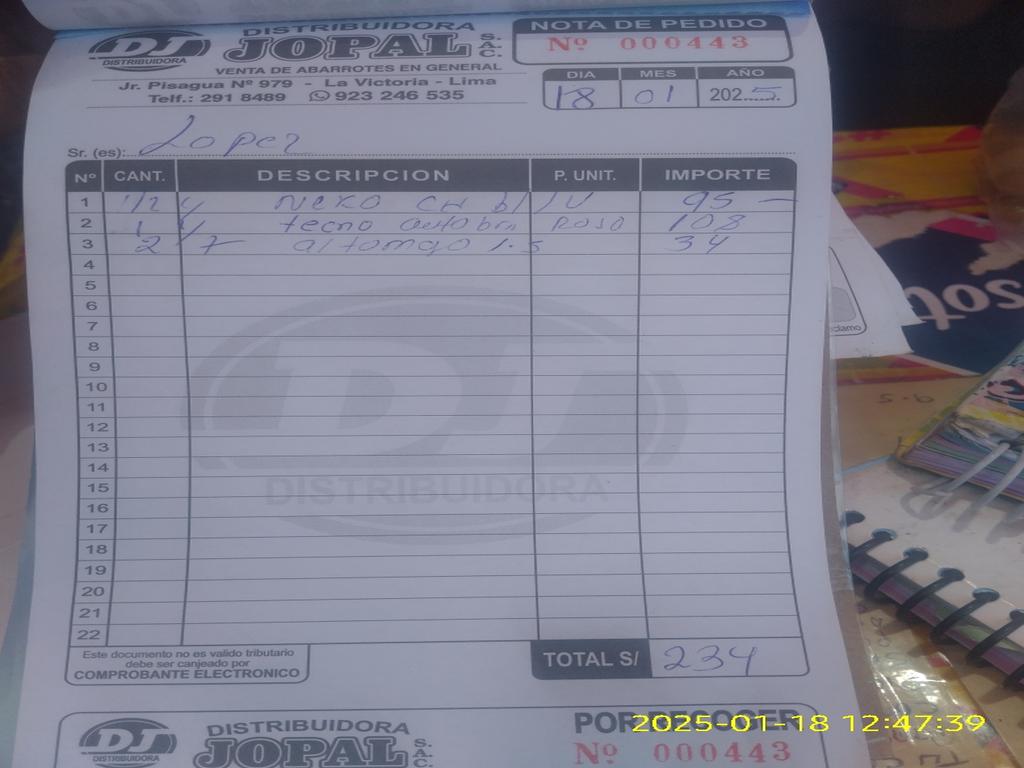 DISTRIBUIDORA
DJ JOPAL S.A.C.
DISTRIBUIDORA
VENTA DE ABARROTES EN GENERAL
Jr. Pisagua Nº 979 - La Victoria - Lima
Telf.: 291 8489 923 246 535
NOTA DE PEDIDO
Nº 000443
DIA MES AÑO
18 01 2025
Sr. (es): Lopez
Nº CANT. DESCRIPCION P. UNIT. IMPORTE
1 1/2 95 —
2 1 tecno 108
3 2 34
4
5
6
7
8
9
10
11
12
13
14
15
16
17
18
19
20
21
22
DJ
DISTRIBUIDORA
Este documento no es valido tributario
debe ser canjeado por
COMPROBANTE ELECTRONICO
TOTAL S/ 234
DISTRIBUIDORA
DJ JOPAL S.A.C.
DISTRIBUIDORA
POR RECOGER
Nº 000443
2025-01-18 12:47:39